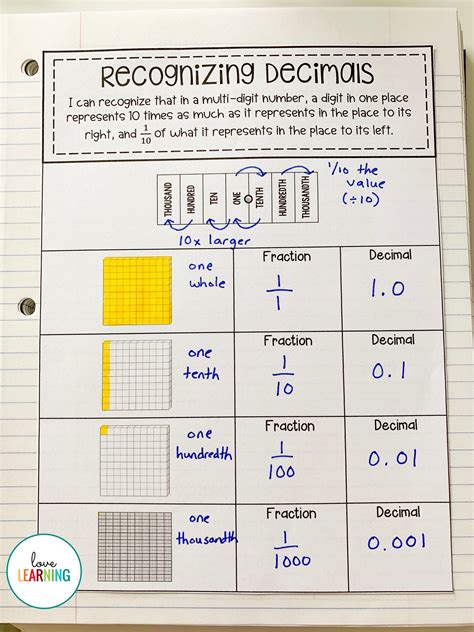 Recognizing Decimals
I can recognize that in a multi-digit number, a digit in one place
represents 10 times as much as it represents in the place to its
right, and 1/10 of what it represents in the place to its left.
THOUSAND HUNDRED TEN ONE TENTH HUNDREDTH THOUSANDTH
1/10 the
value
(÷10)
10x larger
one
whole
Fraction
1/1
Decimal
1.0
one
tenth
Fraction
1/10
Decimal
0.1
one
hundredth
Fraction
1/100
Decimal
0.01
one
thousandth
Fraction
1/1000
Decimal
0.001
love
LEARNING